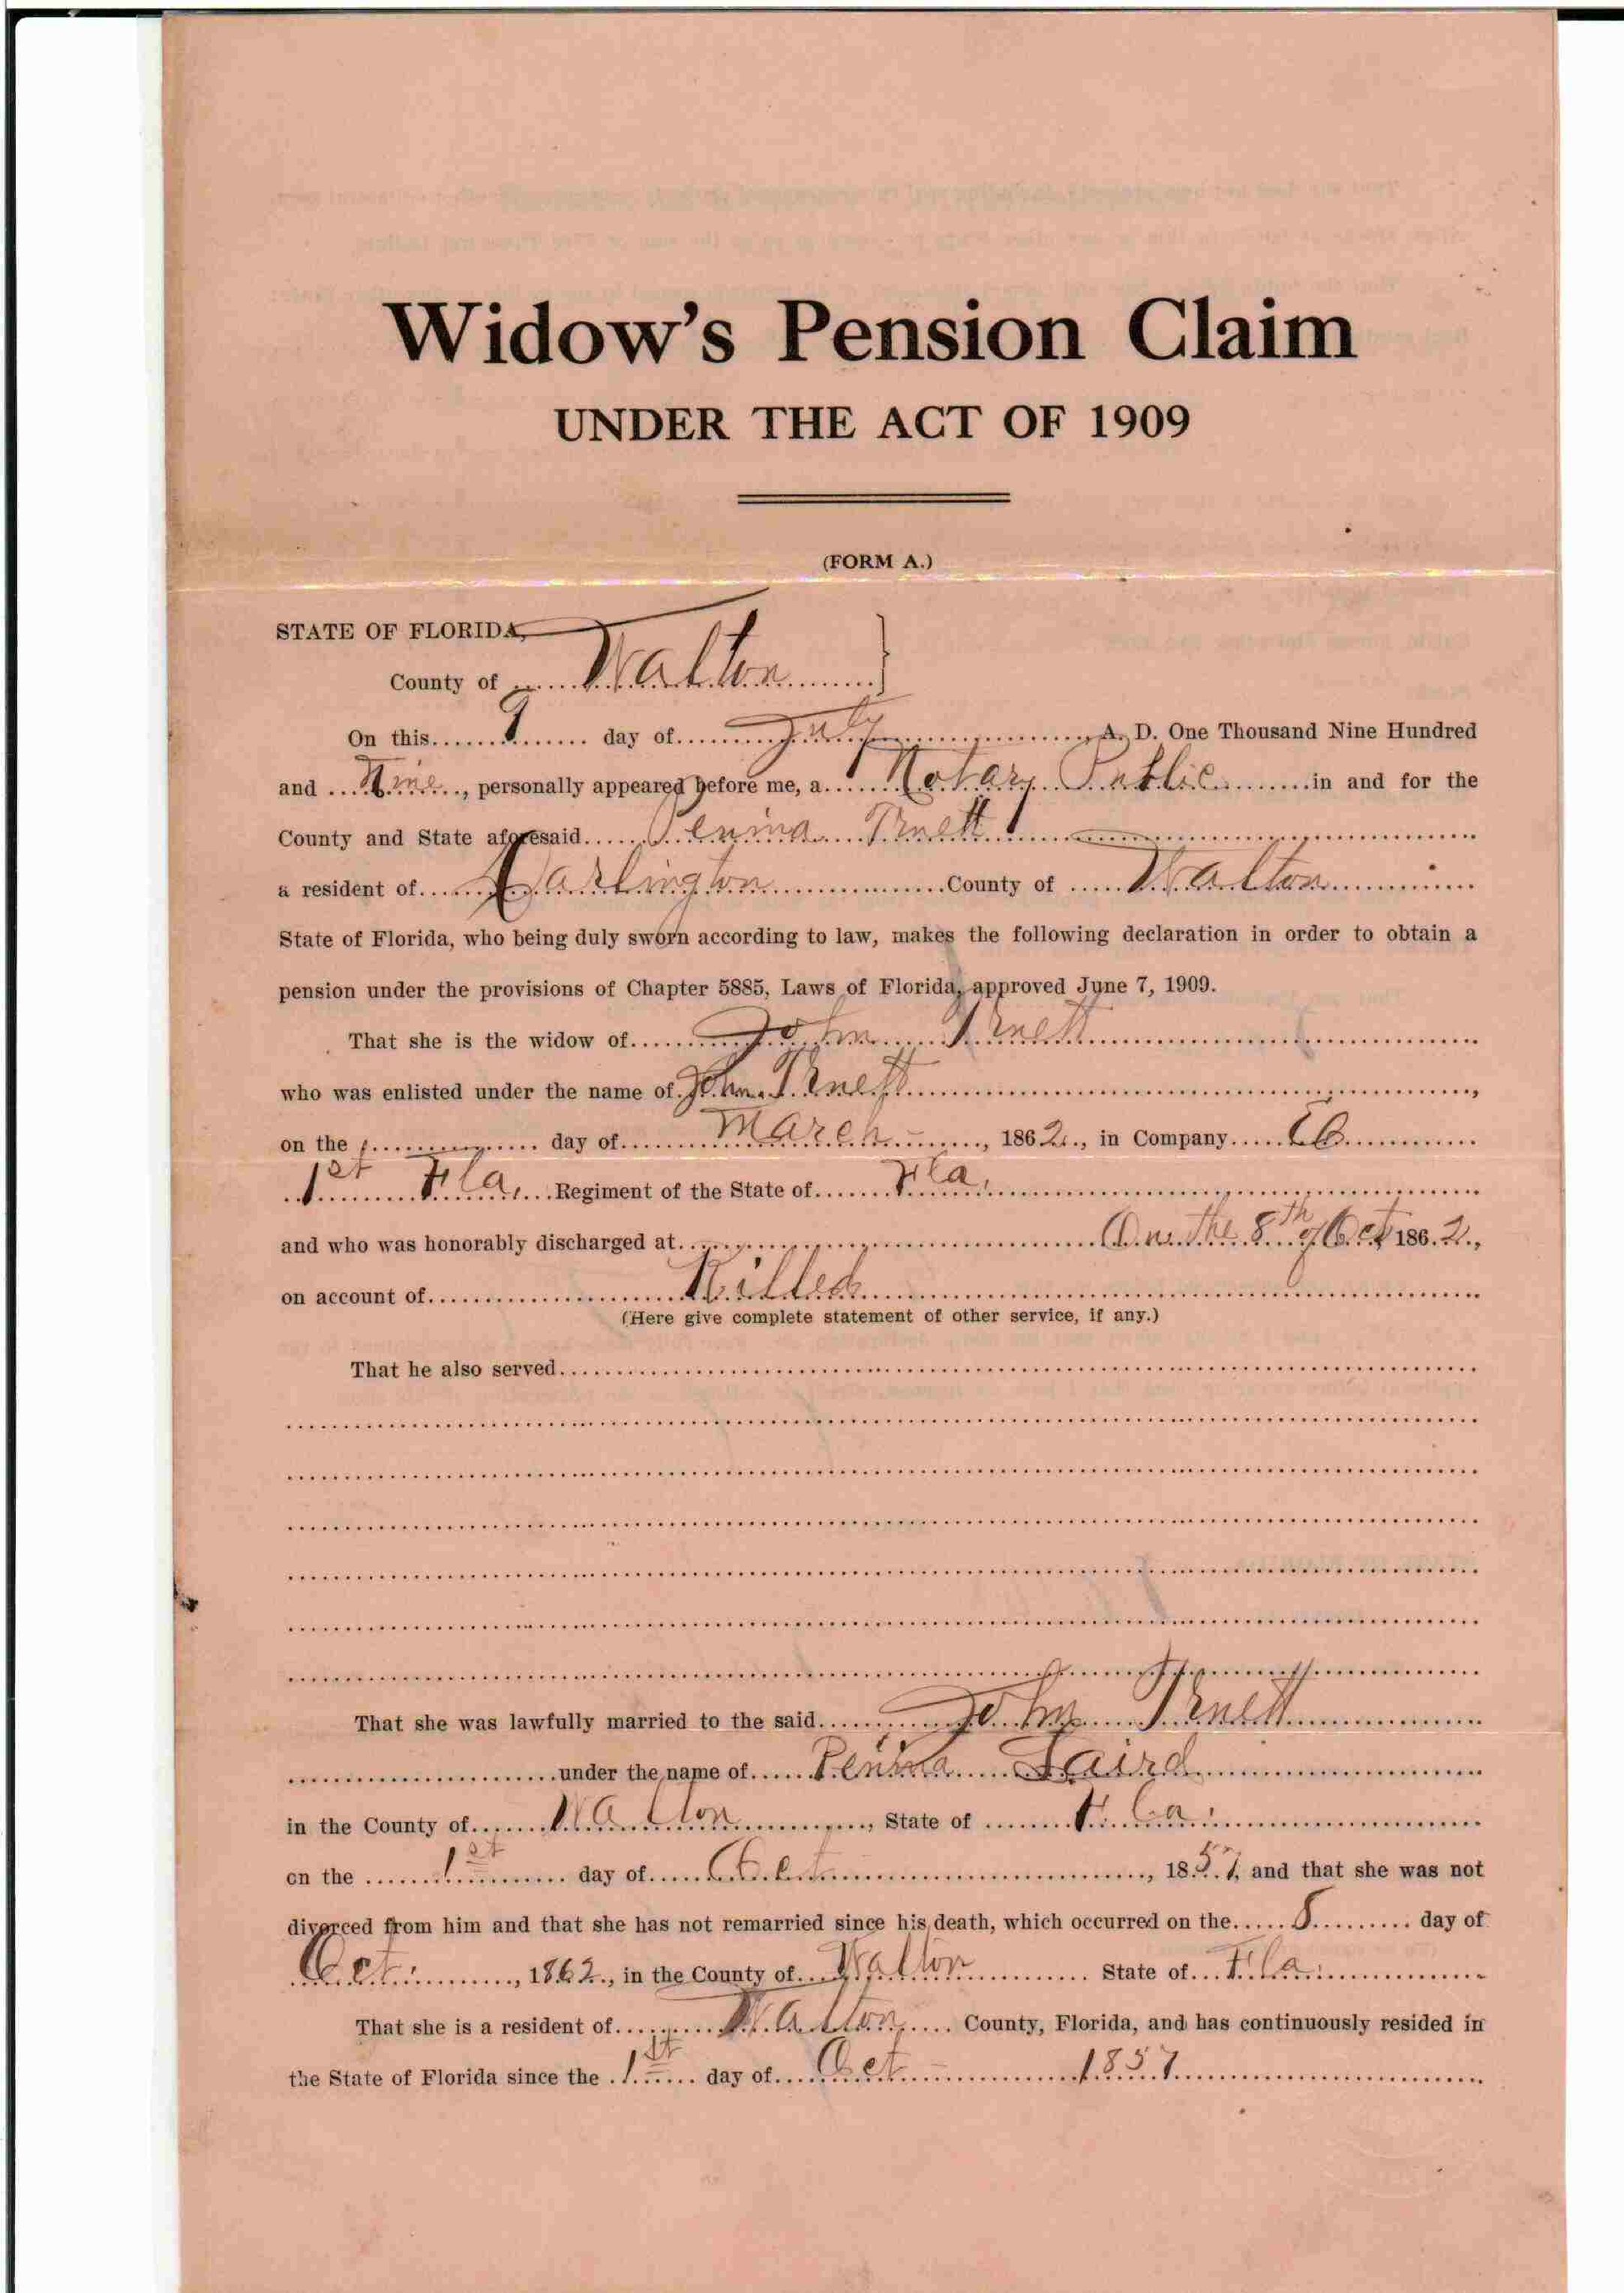 Widow's Pension Claim
UNDER THE ACT OF 1909
(FORM A.)
STATE OF FLORIDA,
County of Walton
On this 9 day of July A. D. One Thousand Nine Hundred
and Nine, personally appeared before me, a Notary Public in and for the
County and State aforesaid Penina Truett
a resident of Darlington County of Walton
State of Florida, who being duly sworn according to law, makes the following declaration in order to obtain a
pension under the provisions of Chapter 5885, Laws of Florida, approved June 7, 1909.
That she is the widow of John Truett
who was enlisted under the name of John Truett,
on the day of March, 1862, in Company
1st Fla, Regiment of the State of Fla,
and who was honorably discharged at On the 8th of Oct 1862,
on account of Killed
(Here give complete statement of other service, if any.)
That he also served
That she was lawfully married to the said John Truett
under the name of Penina Laird
in the County of Walton, State of Fla.
on the 1st day of Oct, 1857, and that she was not
divorced from him and that she has not remarried since his death, which occurred on the 8 day of
Oct., 1862, in the County of Walton State of Fla.
That she is a resident of Walton County, Florida, and has continuously resided in
the State of Florida since the 1st day of Oct 1857